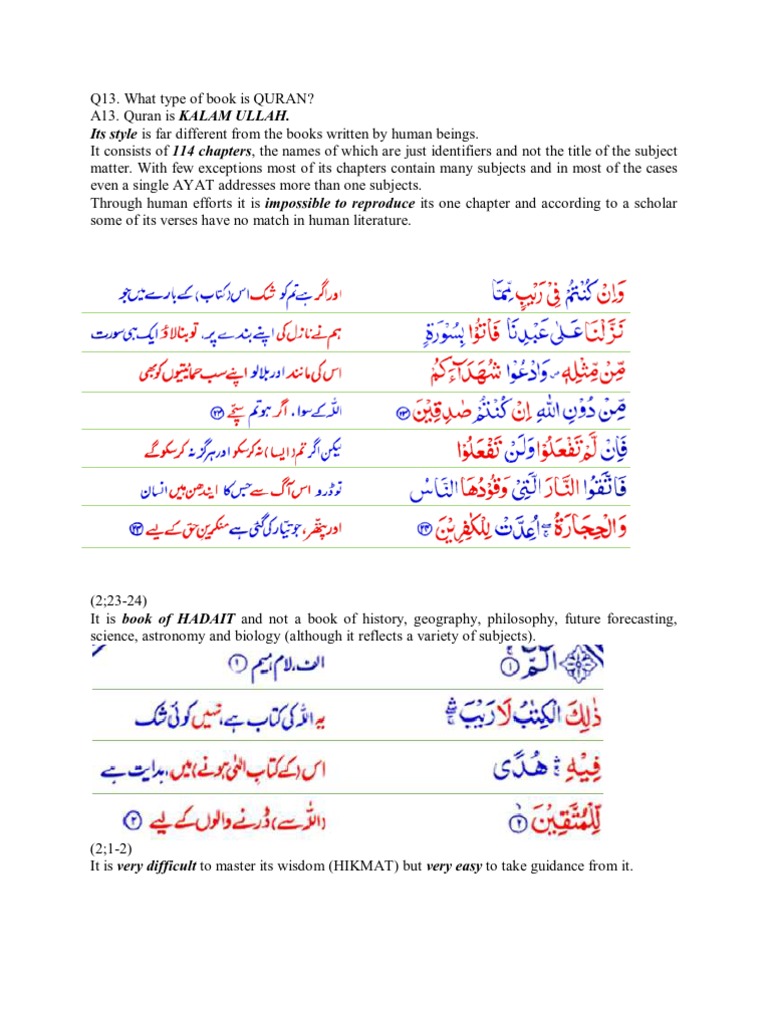 Q13. What type of book is QURAN?
A13. Quran is KALAM ULLAH.
Its style is far different from the books written by human beings.
It consists of 114 chapters, the names of which are just identifiers and not the title of the subject
matter. With few exceptions most of its chapters contain many subjects and in most of the cases
even a single AYAT addresses more than one subjects.
Through human efforts it is impossible to reproduce its one chapter and according to a scholar
some of its verses have no match in human literature.
وَاِنْ كُنْتُمْ فِىْ رَيْبٍ مِّمَّا اور اگر ہے تم کو شک اس (کتاب) کے بارے میں جو
نَزَّلْنَا عَلٰى عَبْدِنَا فَاْتُوْا بِسُوْرَةٍ ہم نے نازل کی اپنے بندے پر، تو بنا لاؤ ایک ہی سورت
مِّنْ مِّثْلِهٖ وَادْعُوْا شُهَدَآءَكُمْ اس کی مانند اور بلا لو اپنے سب حمایتیوں کو بھی
مِّنْ دُوْنِ اللّٰهِ اِنْ كُنْتُمْ صٰدِقِيْنَ ۲۳ اللہ کے سوا، اگر ہو تم سچّے ۲۳
فَاِنْ لَّمْ تَفْعَلُوْا وَلَنْ تَفْعَلُوْا لیکن اگر تم (ایسا) نہ کر سکو اور ہر گز نہ کر سکو گے
فَاتَّقُوا النَّارَ الَّتِىْ وَقُوْدُهَا النَّاسُ تو ڈرو اس آگ سے جس کا ایندھن ہیں انسان
وَالْحِجَارَةُ ۖ اُعِدَّتْ لِلْكٰفِرِيْنَ ۲۴ اور پتھر، جو تیار کی گئی ہے منکرین حق کے لیے ۲۴
(2;23-24)
It is book of HADAIT and not a book of history, geography, philosophy, future forecasting,
science, astronomy and biology (although it reflects a variety of subjects).
الٓمّٓ ۱ الف، لام، میم ۱
ذٰلِكَ الْكِتٰبُ لَا رَيْبَ ۛ یہ اللہ کی کتاب ہے، نہیں کوئی شک
فِيْهِ ۛ هُدًى اس (کے کتاب الٰہی ہونے) میں، ہدایت ہے
لِّلْمُتَّقِيْنَ ۲ (اللہ سے) ڈرنے والوں کے لیے ۲
(2;1-2)
It is very difficult to master its wisdom (HIKMAT) but very easy to take guidance from it.